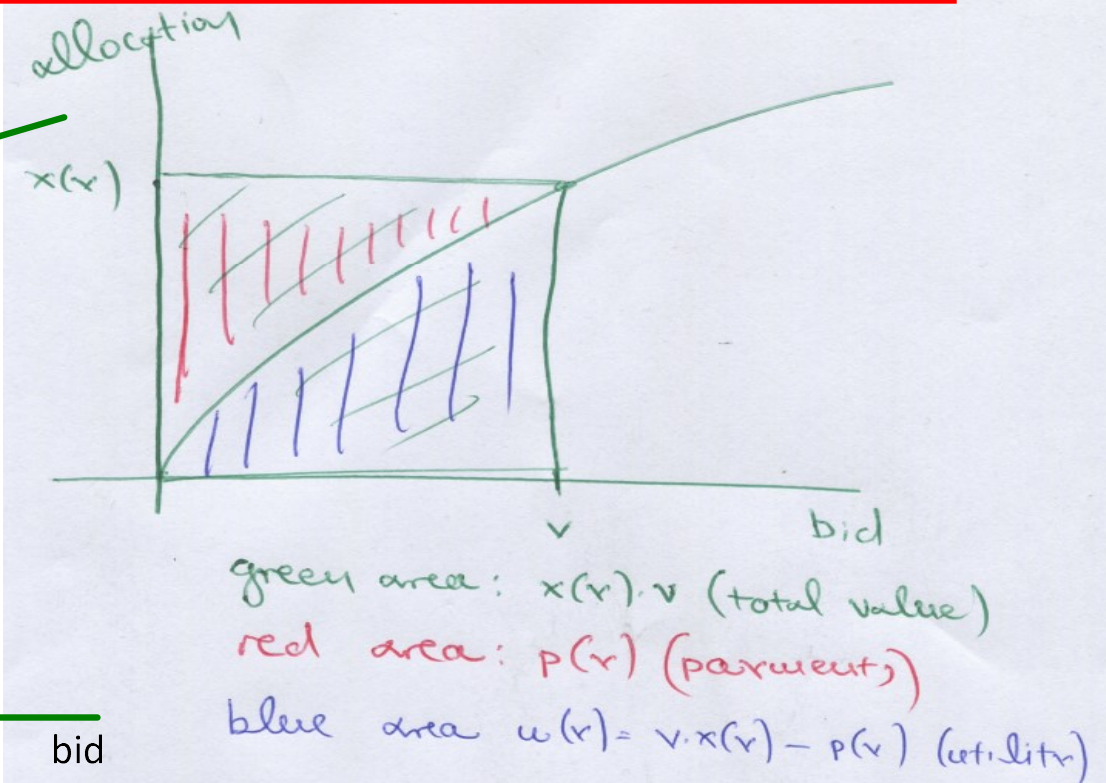 allocation
x(v)
v
bid
green area: x(v).v (total value)
red area: p(v) (payment,)
blue area u(v)= v.x(v) - p(v) (utility)
bid